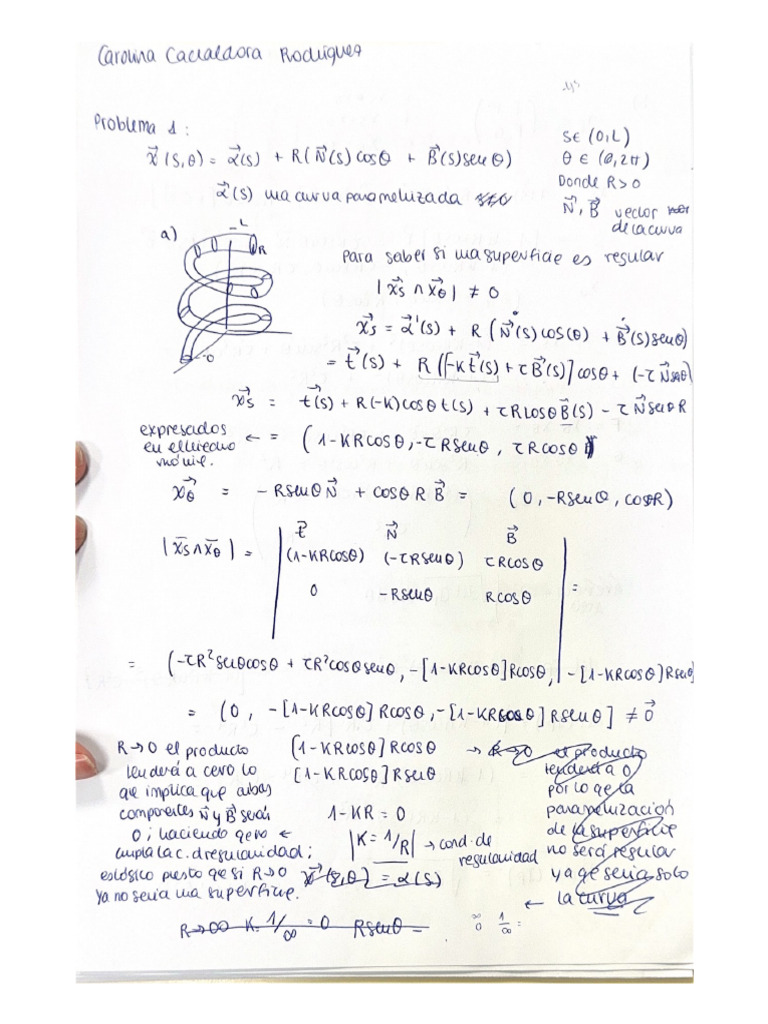 Carolina Rodríguez
Problema 1:
x⃗(s,θ) = α⃗(s) + R(N⃗(s)cosθ + B⃗(s)senθ)
s∈(0,L)
θ∈(0,2π)
Donde R>0
N⃗, B⃗ vector
de la curva
α⃗(s) una curva parametrizada
a)
L
R
0
Para saber si una superficie es regular
|x⃗s ∧ x⃗θ| ≠ 0
x⃗s = α⃗'(s) + R(N⃗'(s)cos(θ) + B⃗'(s)senθ)
= t⃗(s) + R([-Kt⃗(s) + τB⃗(s)]cosθ + (-τN⃗senθ)
x⃗s = t⃗(s) + R(-K)cosθt(s) + τRcosθB⃗(s) - τN⃗senθR
expresados
en el triedro
móvil.
← = (1-KRcosθ, -τRsenθ, τRcosθ)
x⃗θ = -RsenθN⃗ + cosθRB⃗ = (0, -Rsenθ, cosθR)
|x⃗s∧x⃗θ| =
t⃗ N⃗ B⃗
(1-KRcosθ) (-τRsenθ) τRcosθ
0 -Rsenθ Rcosθ
=
= (-τR²senθcosθ + τR²cosθsenθ, -[1-KRcosθ]Rcosθ, -[1-KRcosθ]Rsenθ
= (0, -[1-KRcosθ]Rcosθ, -[1-KRcosθ]Rsenθ] ≠ 0⃗
R→0 el producto
tenderá a cero lo
que implica que ambas
componentes N⃗ y B⃗ serán
0; haciendo que no ←
cumpla la c. d regularidad;
es lógico puesto que si R→0
ya no seria una superficie.
[1-KRcosθ]Rcosθ
[1-KRcosθ]Rsenθ
1-KR = 0
|K = 1/R| → cond. de
regularidad
x⃗(s,θ) = α(s)
→ R→0 el producto
tenderá a 0
por lo que la
parametrización
de la superficie
no será regular
ya que seria solo
← la curva
R→∞ K. 1/∞ = 0 Rsenθ =
∞/0 1/∞ =